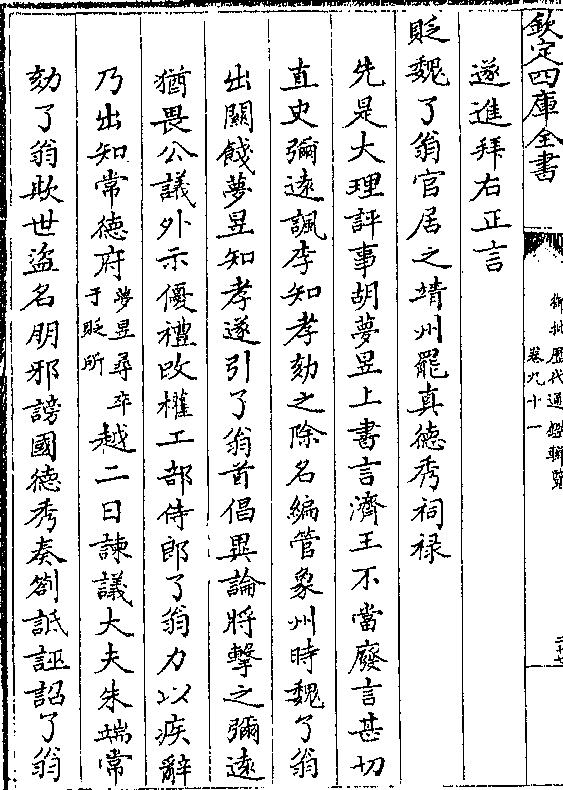 欽定四庫全書
御批歷代通鑑輯覽
卷九十一
遂進拜右正言
貶魏了翁官居之靖州罷真德秀祠祿
先是大理評事胡夢昱上書言濟王不當廢言甚切
直史彌遠諷李知孝劾之除名編管象州時魏了翁
出關餞夢昱知孝遂引了翁首倡異論將擊之彌遠
猶畏公議外示優禮改權工部侍郎了翁力以疾辭
乃出知常德府夢昱尋卒于貶所越二日諫議大夫朱端常
劾了翁欺世盜名朋邪謗國德秀奏劄詆誣詔了翁